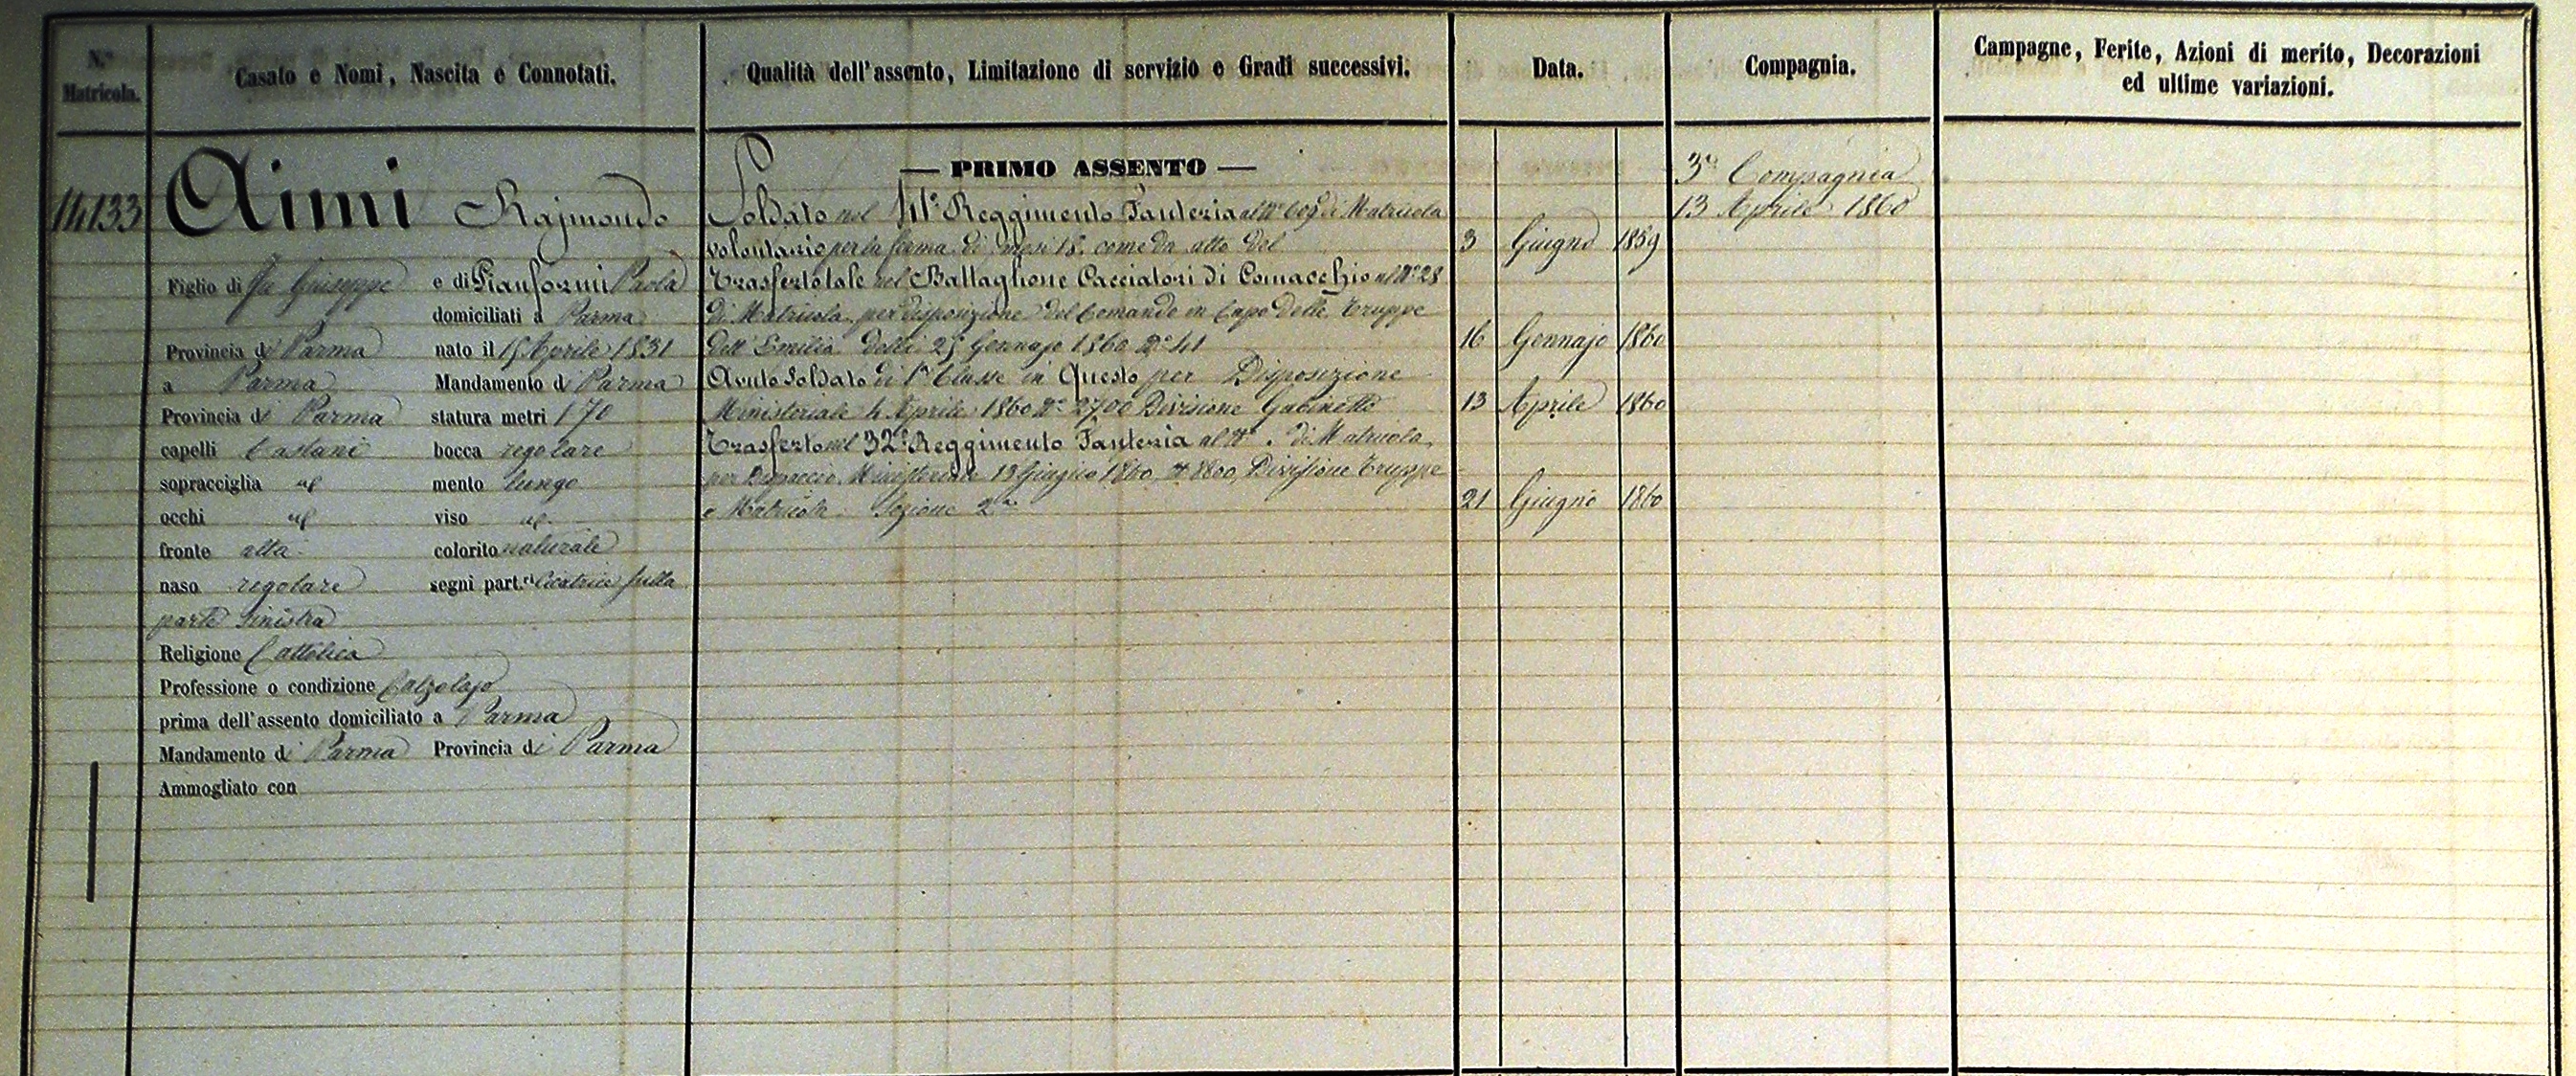 N.° Matricola.
Casato e Nomi, Nascita e Connotati.
Qualità dell'assento, Limitazione di servizio e Gradi successivi.
Data.
Compagnia.
Campagne, Ferite, Azioni di merito, Decorazioni
ed ultime variazioni.
14133
Aimi Rajmondo
Figlio di fu Giuseppe e di Pianforini Paola
domiciliati a Parma
Provincia di Parma nato il 15 Aprile 1831
a Parma Mandamento di Parma
Provincia di Parma statura metri 1 70
capelli Castani bocca regolare
sopracciglia id mento lungo
occhi id viso id
fronte alta colorito naturale
naso regolare segni part.ri Cicatrice sulla
parte sinistra
Religione Cattolica
Professione o condizione Calzolajo
prima dell'assento domiciliato a Parma
Mandamento di Parma Provincia di Parma
Ammogliato con
— PRIMO ASSENTO —
Soldato nel Reggimento Fanteria al N° di Matricola
volontario per la ferma di mesi 18. come da atto del 3 Giugno 1859
Trasferto tale nel Battaglione Cacciatori di Comacchio al N° 28
di Matricola per disposizione del Comando in Capo delle Truppe
dell'Emilia delli 25 Gennajo 1860 N° 41 16 Gennajo 1860
Avuto Soldato di 1a Classe in Questo per Disposizione
Ministeriale 4 Aprile 1860 N° 2700 Divisione Gabinetto 13 Aprile 1860
Trasferto nel 32° Reggimento Fanteria al N° . di Matricola
per Dispaccio Ministeriale 13 Giugno 1860, N° 8800, Divisione Truppe
e Matricola. Sezione 2a 21 Giugno 1860
3a Compagnia
13 Aprile 1860